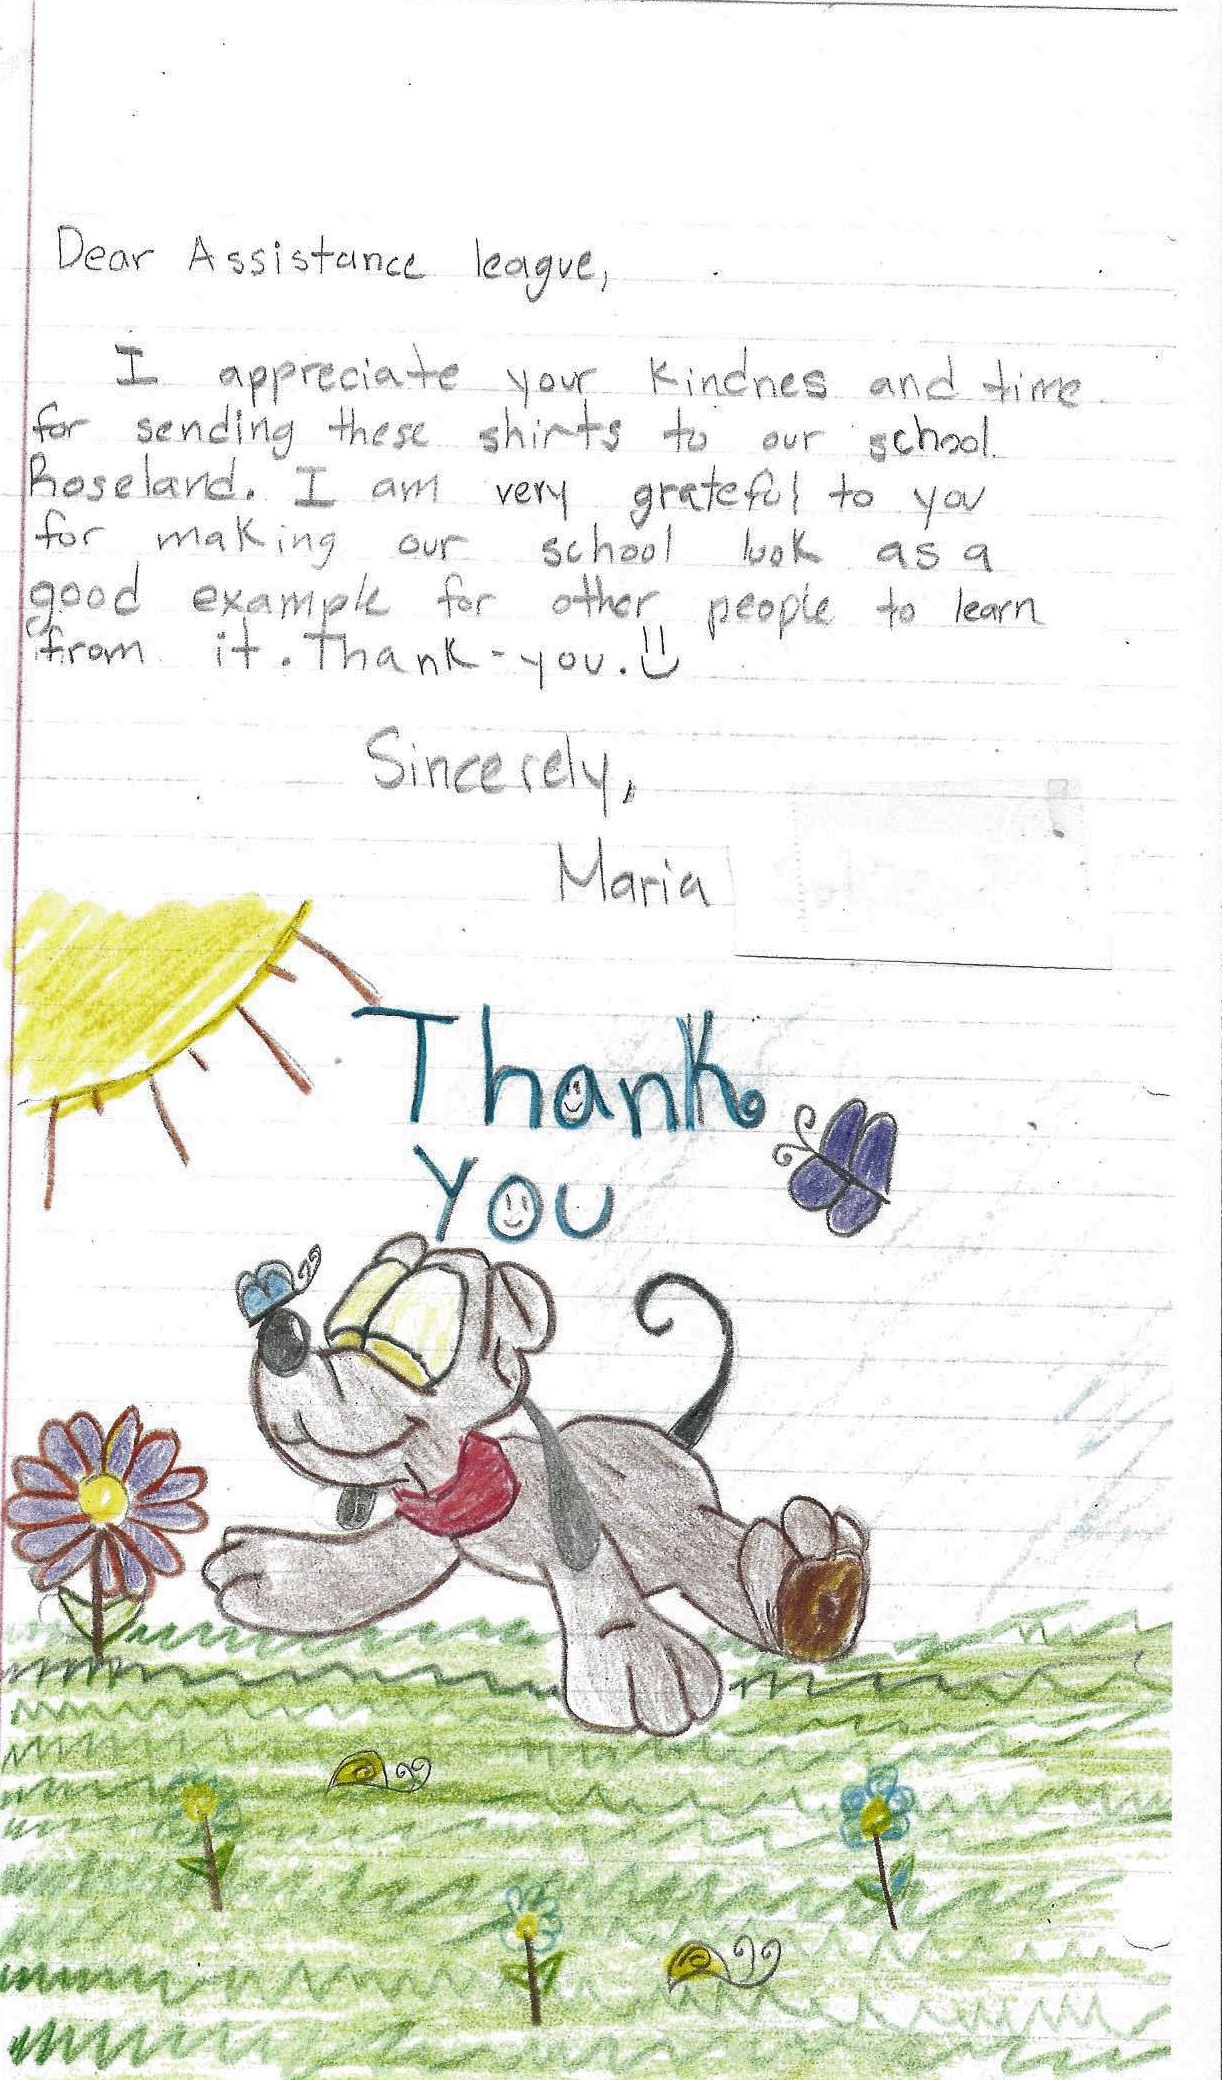 Dear Assistance league,
I appreciate your kindnes and time
for sending these shirts to our school
Roseland. I am very grateful to you
for making our school look as a
good example for other people to learn
from it. Thank-you.
Sincerely,
Maria
Thank
You